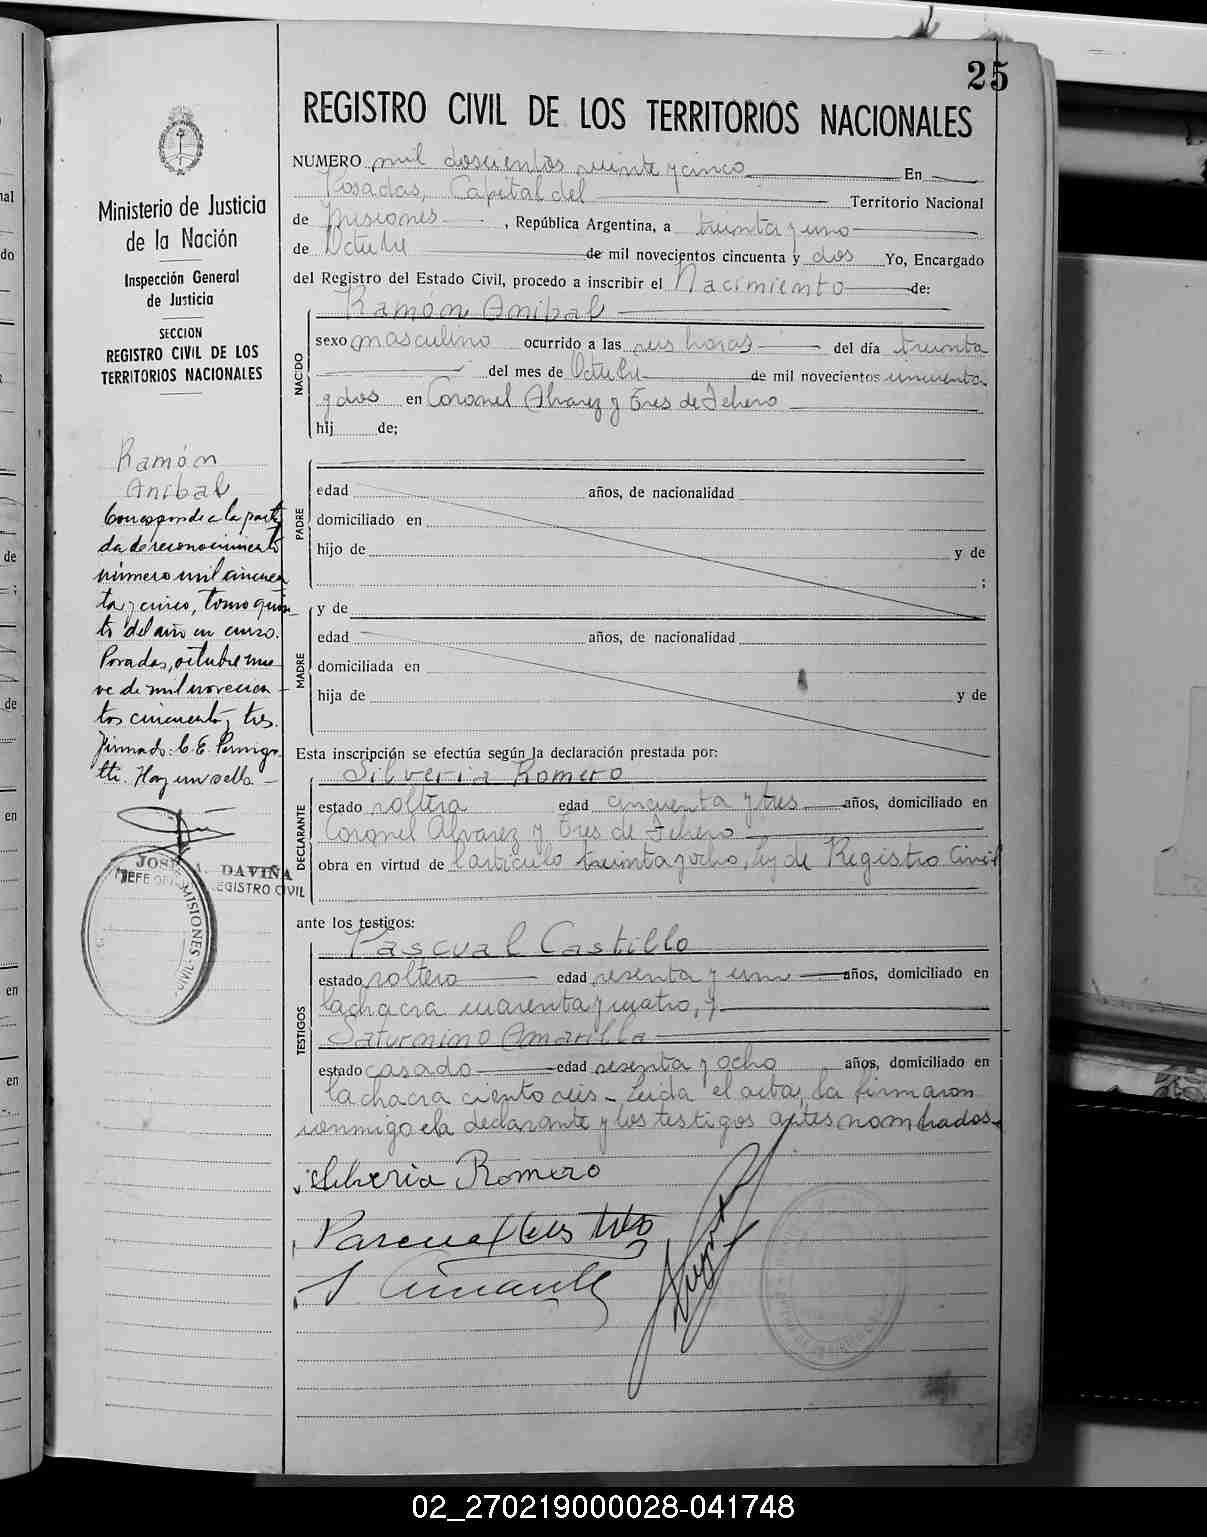 25
REGISTRO CIVIL DE LOS TERRITORIOS NACIONALES
NUMERO mil doscientos veinte y cinco En
Posadas, Capital del Territorio Nacional
de Misiones , República Argentina, a treinta y uno
de Octubre de mil novecientos cincuenta y dos Yo, Encargado
del Registro del Estado Civil, procedo a inscribir el Nacimiento de:
Ramón Anibal
NACIDO
sexo masculino ocurrido a las seis horas del día treinta
del mes de Octubre de mil novecientos cincuenta
y dos en Coronel Alvarez y Tres de Febrero
hij de;
PADRE
edad años, de nacionalidad
domiciliado en
hijo de y de
;
MADRE
y de
edad años, de nacionalidad
domiciliada en
hija de y de
Esta inscripción se efectúa según la declaración prestada por:
DECLARANTE
Silveria Romero
estado soltera edad cincuenta y tres años, domiciliado en
Coronel Alvarez y Tres de Febrero
obra en virtud de l artículo treinta y ocho, ley de Registro Civil
ante los testigos:
TESTIGOS
Pascual Castillo
estado soltero edad sesenta y uno años, domiciliado en
la chacra cuarenta y cuatro, y
Saturnino Amarilla
estado casado edad sesenta y ocho años, domiciliado en
la chacra ciento seis - Leída el acta, la firmaron
conmigo la declarante y los testigos antes nombrados.
Silveria Romero
Pascual Castillo
S. Amarilla
Ministerio de Justicia
de la Nación
Inspección General
de Justicia
SECCION
REGISTRO CIVIL DE LOS
TERRITORIOS NACIONALES
Ramón
Anibal
Corresponde a la parti
da de reconocimiento
número mil cincuen
ta y cinco, tomo quin
to del año en curso.
Posadas, octubre nue
ve de mil novecien
tos cincuenta y tres.
Firmado: C. E. Pernigo
tti. Hay un sello. -
JOSE A. DAVIÑA
JEFE REGISTRO CIVIL
MISIONES
nal
do
de
de
en
en
en
02_270219000028-041748